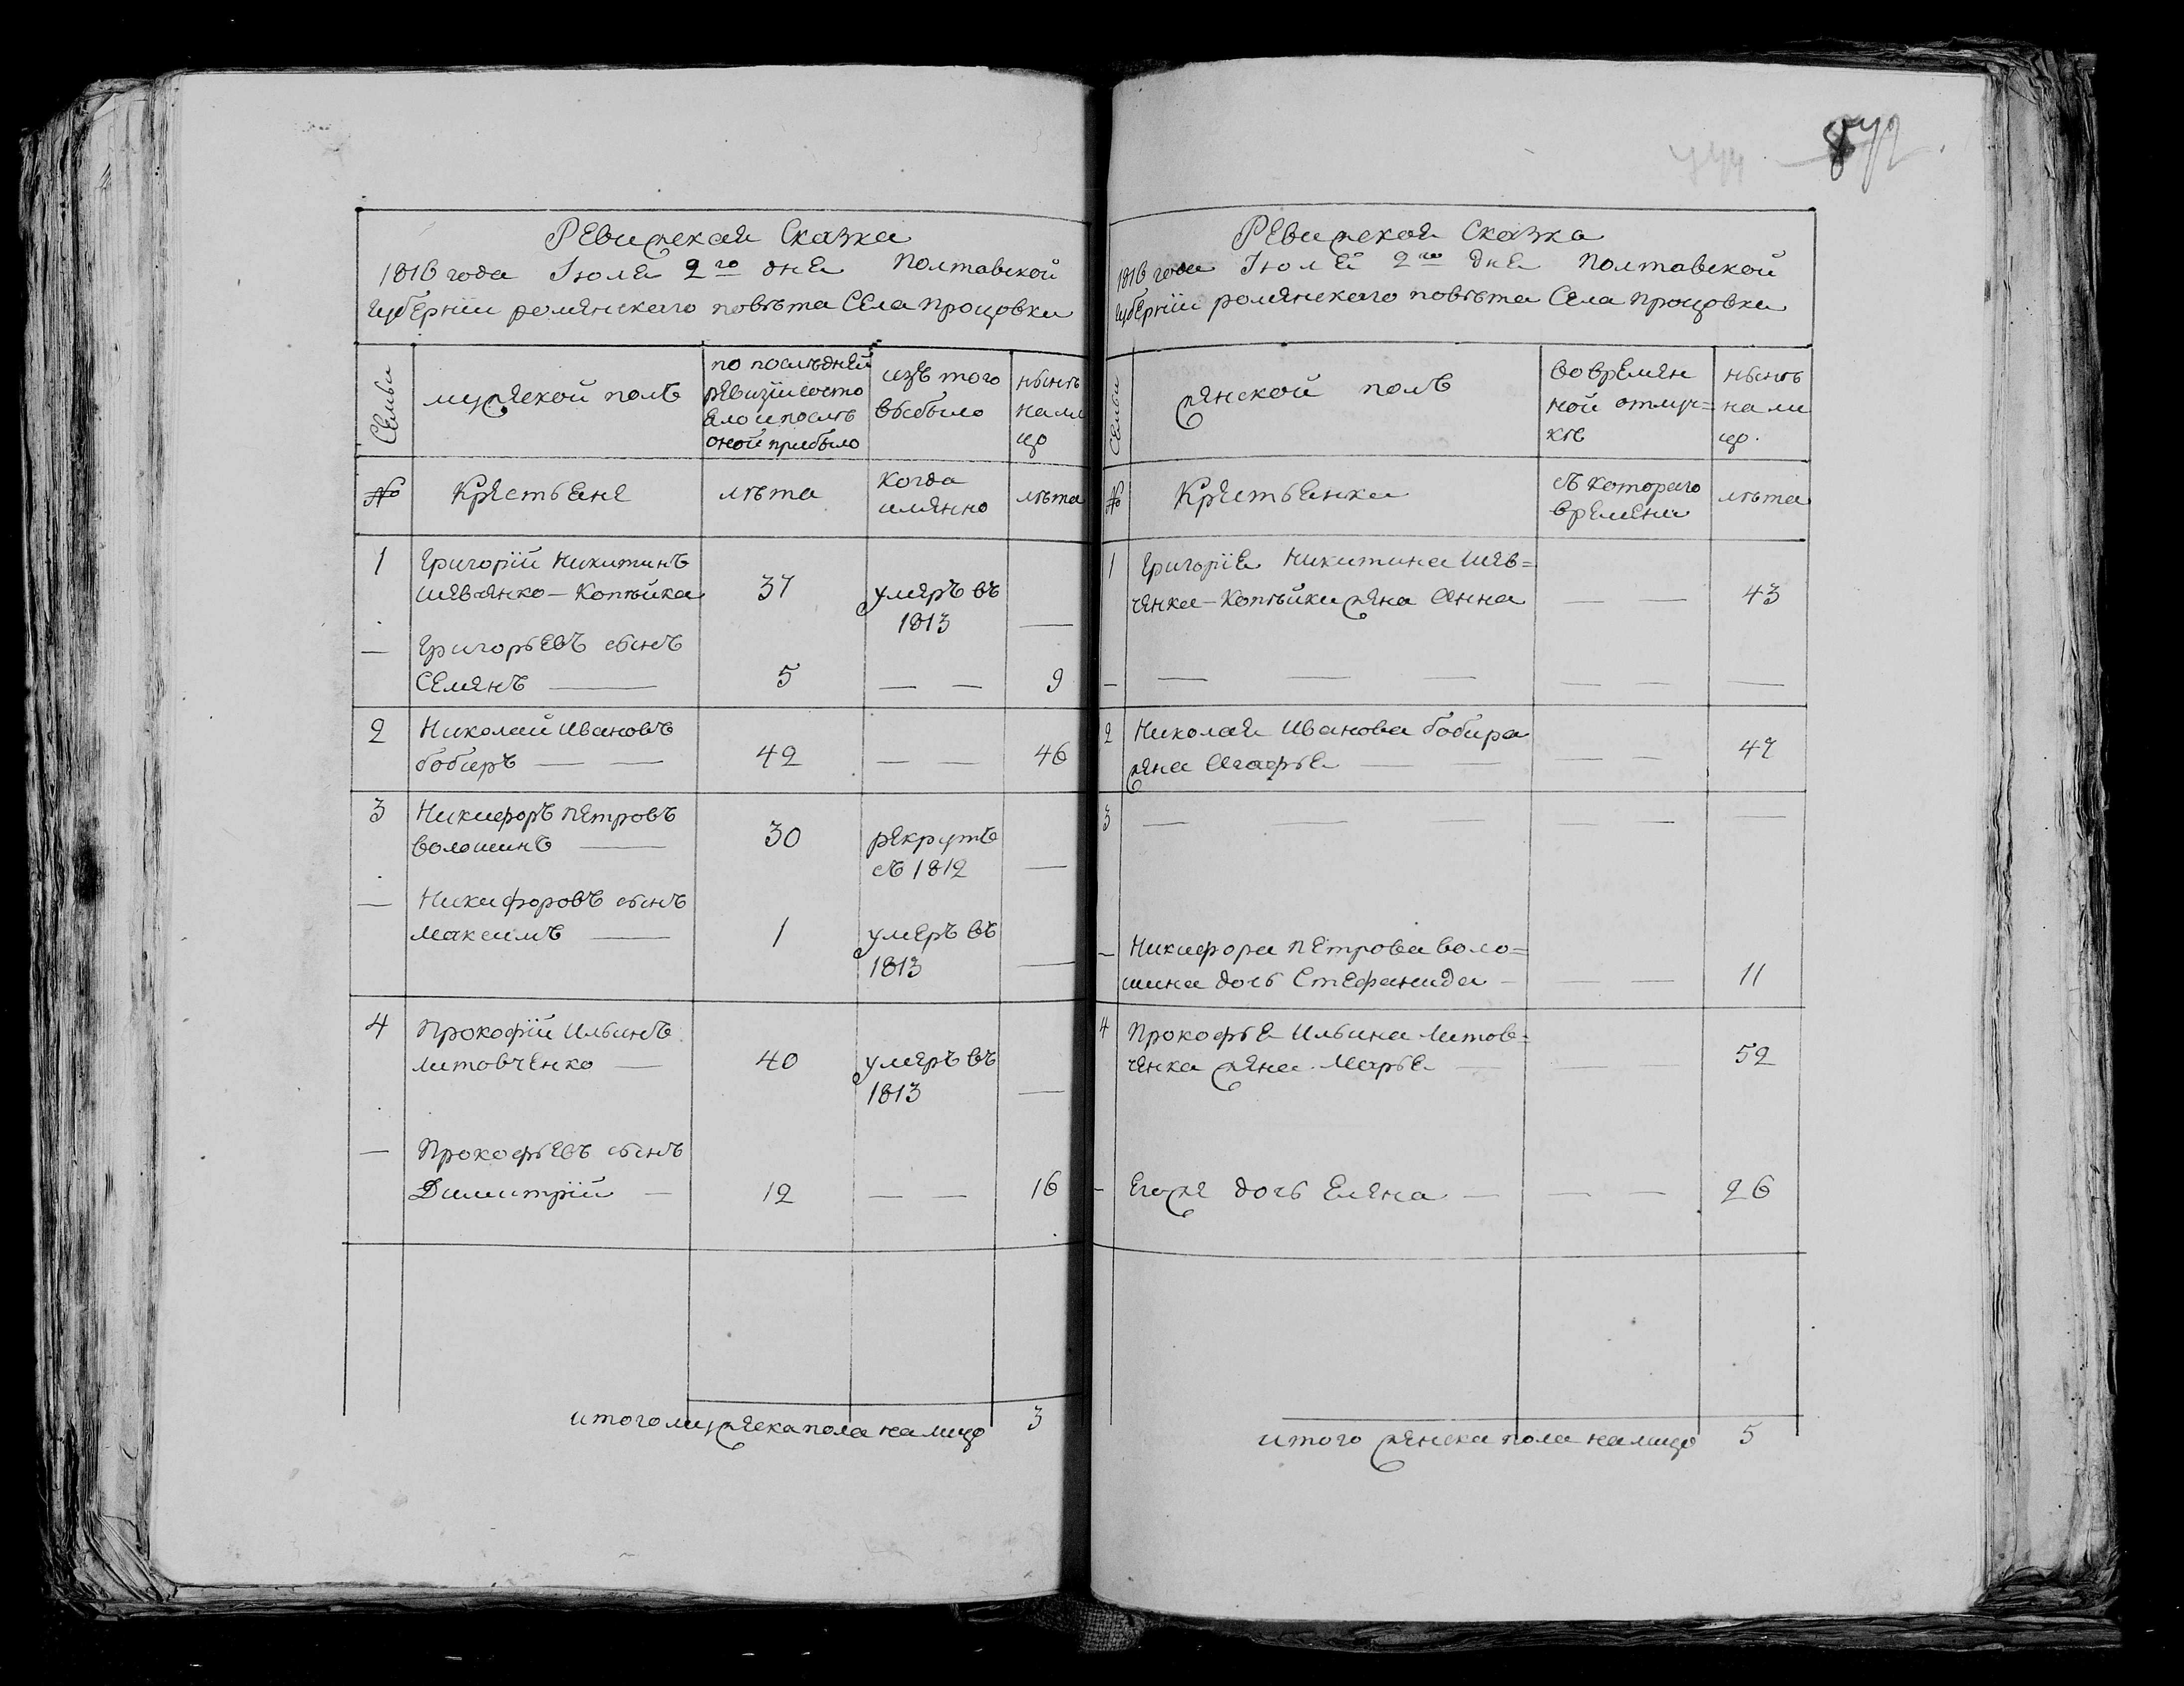 Ревизская Сказка
1816 года Іюля 2го дня Полтавской
Губерніи роменскаго повѣта Села процовки
Семьи
мужеской полъ
по послѣдней
ревизіи состо
яло и послѣ
оной прибыло
изъ того
выбыло
нынѣ
на ли
цо
№
Крестьяне
лѣта
Когда
имянно
лѣта
1
Григорій Никитинъ
шевченко-Копѣйка
37
умеръ въ
1813
—
— Григорьевъ сынъ
Семенъ —
5
— —
9
2
Николай Ивановъ
бобиръ — —
42
— —
46
3
Никифоръ Петровъ
волошинъ —
30
рекрутъ
съ 1812
—
— Никифоровъ сынъ
Максимъ —
1
умеръ въ
1813
—
4
Прокофій Ильинъ
литовченко —
40
умеръ въ
1813
—
— Прокофьевъ сынъ
Димитрій —
12
— —
16
итого мужеска пола налицо 3
872.
Ревизская Сказка
1816 года Іюля 2го дня Полтавской
Губерніи роменскаго повѣта Села процовки
Семьи
женской полъ
во времян
ной отлуч=
кѣ
нынѣ
на ли
цо.
№
Крестьянки
съ котораго
времяни
лѣта
1
Григорія Никитина Шев=
ченка-Копѣйки жена Анна
— —
43
— — — — — — —
2
Николая Иванова бобира
жена Агафья — —
— —
47
3
— — — — — —
— Никифора Петрова воло=
шина дочь Стефанида —
— —
11
4
Прокофья Ильина Литов=
ченка жена Марья —
— —
52
— Егожъ дочь Елена —
— —
26
итого женска пола налицо 5